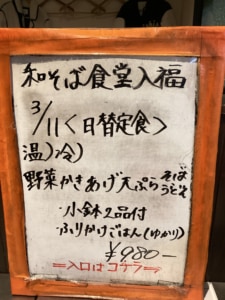 和そば食堂入福
3/11<日替定食>
温)冷)
野菜かきあげ天ぷらそば
うどん
小鉢2品付
ふりかけごはん(ゆかり)
¥980-
=入口はコチラ=